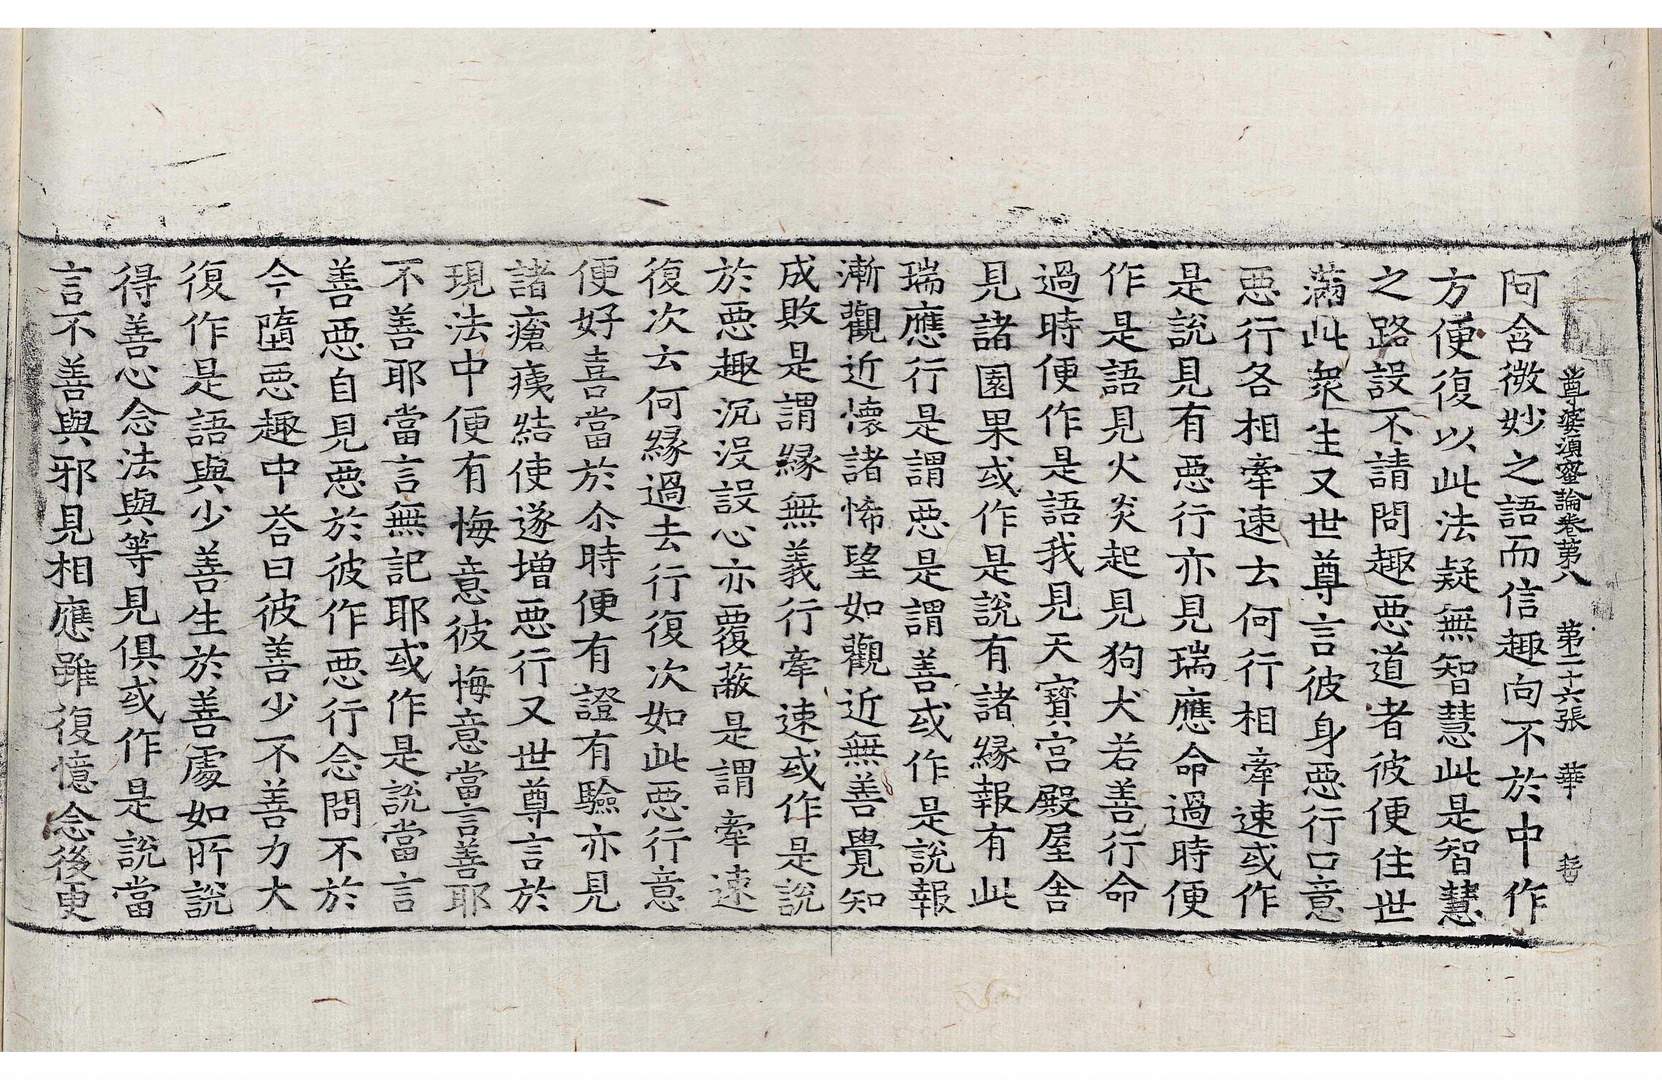 尊婆須蜜論卷第八 第二十六張 華
阿含微妙之語而信趣向不於中作
方便復以此法疑無智慧此是智慧
之路設不請問趣惡道者彼便住世
滿此衆生又世尊言彼身惡行口意
惡行各相牽速云何行相牽速或作
是說見有惡行亦見瑞應命過時便
作是語見火炎起見狗犬若善行命
過時便作是語我見天寶宮殿屋舍
見諸園果或作是說有諸緣報有此
瑞應行是謂惡是謂善或作是說報
漸觀近懷諸悕望如觀近無善覺知
成敗是謂緣無義行牽速或作是說
於惡趣沉沒設心亦覆蔽是謂牽速
復次云何緣過去行復次如此惡行意
便好喜當於尒時便有證有驗亦見
諸瘡痍結使遂增惡行又世尊言於
現法中便有悔意彼悔意當言善耶
不善耶當言無記耶或作是說當言
善惡自見惡於彼作惡行念問不於
今墮惡趣中荅曰彼善少不善力大
復作是語與少善生於善處如所說
得善心念法與等見俱或作是說當
言不善與邪見相應雖復憶念後更